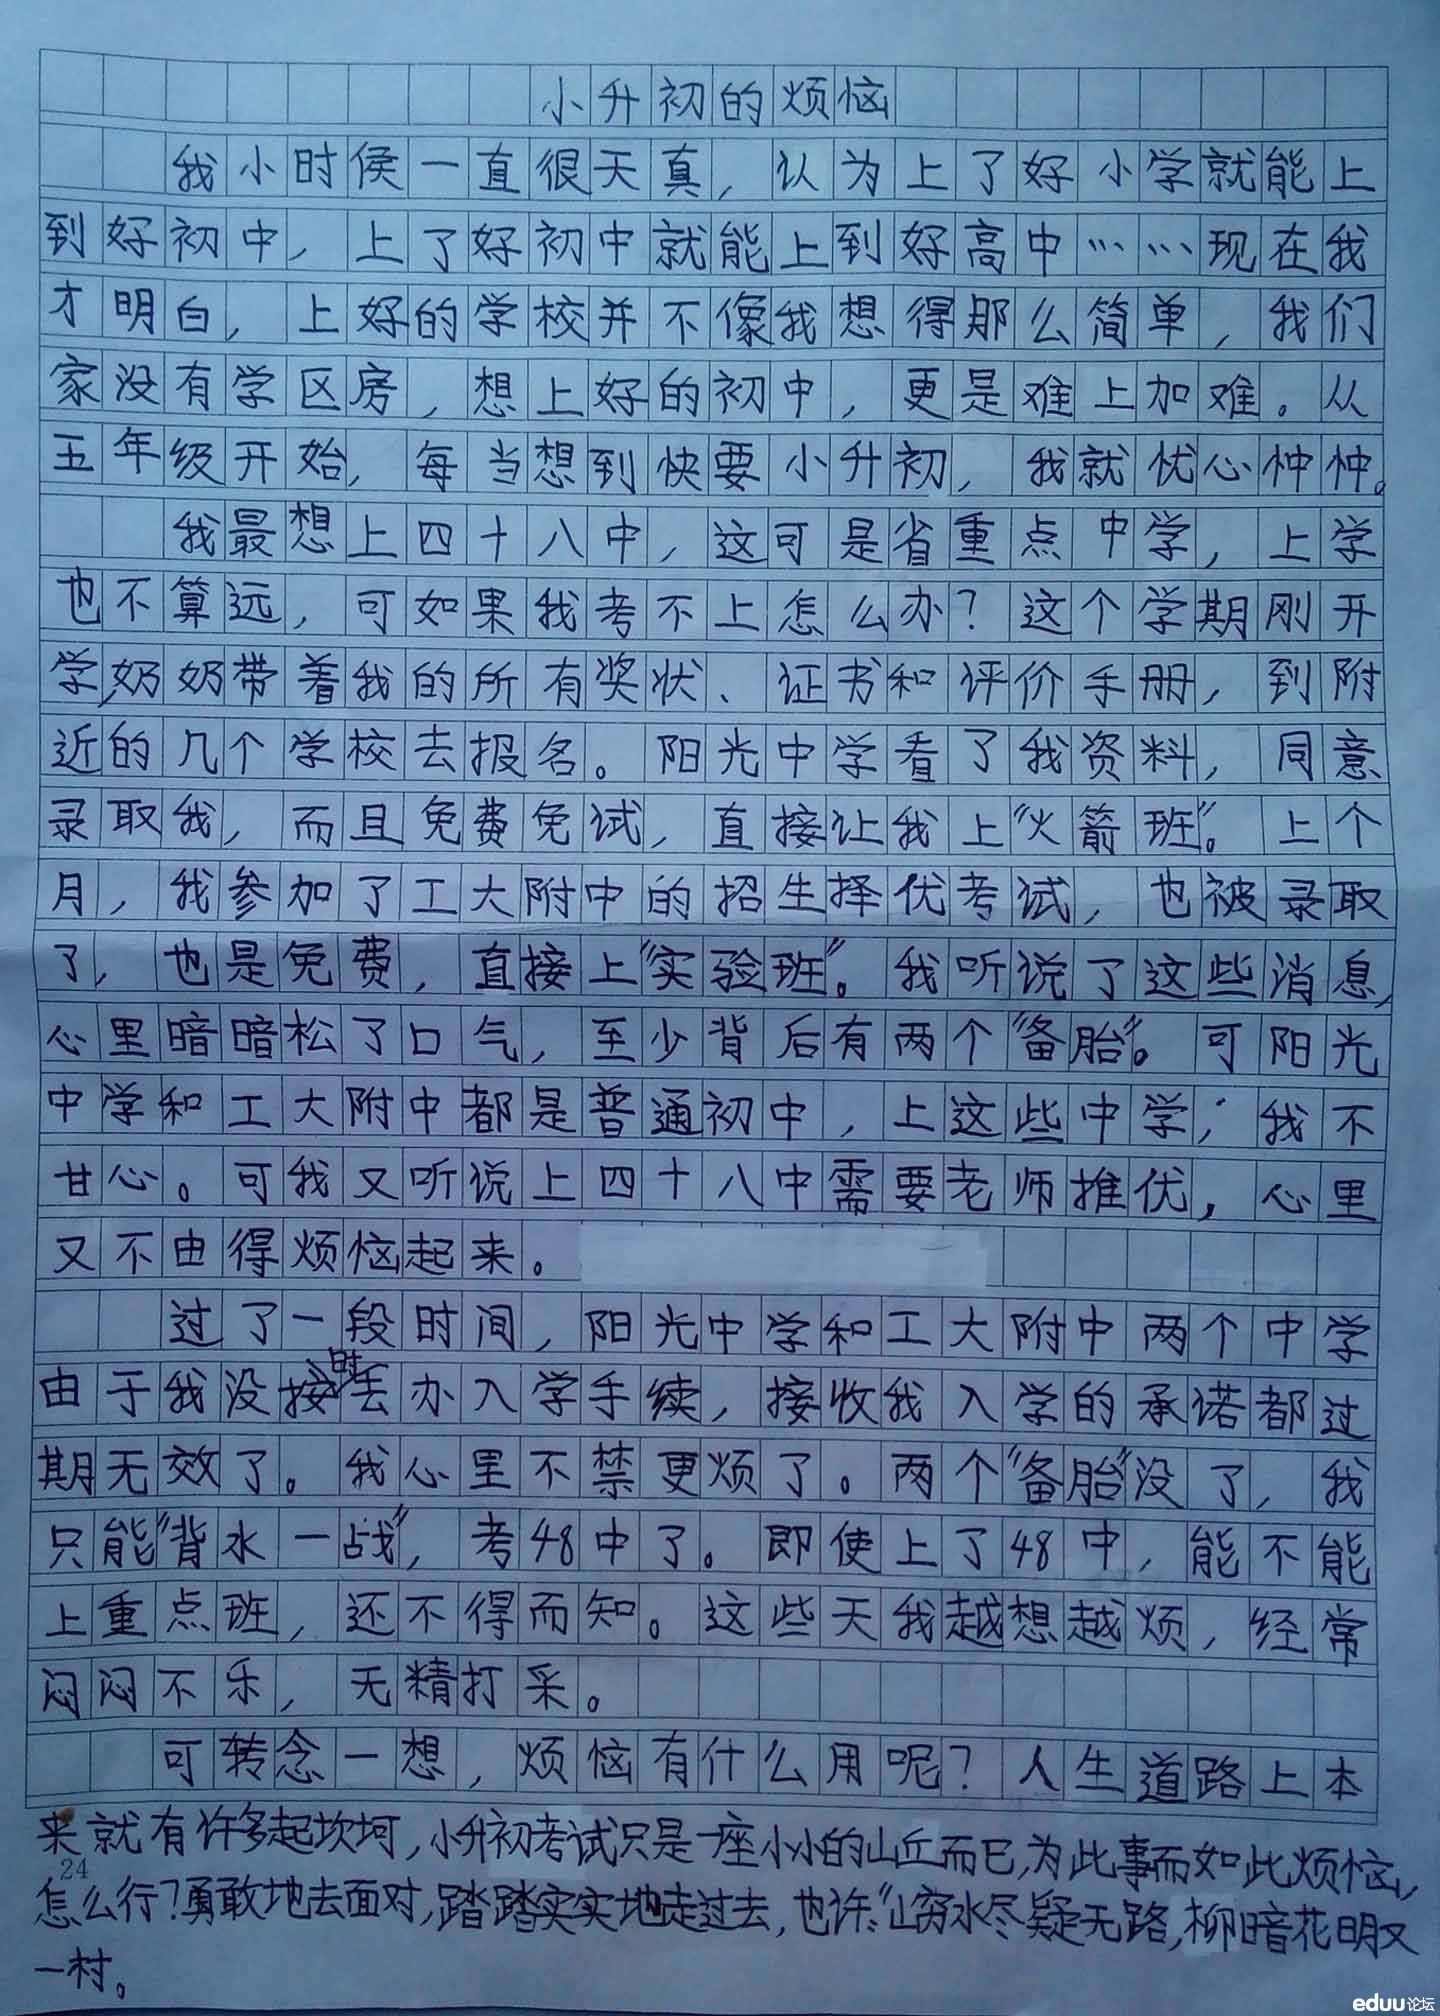 小升初的烦恼
我小时侯一直很天真，认为上了好小学就能上
到好初中，上了好初中就能上到好高中……现在我
才明白，上好的学校并不像我想得那么简单，我们
家没有学区房，想上好的初中，更是难上加难。从
五年级开始，每当想到快要小升初，我就忧心忡忡。
我最想上四十八中，这可是省重点中学，上学
也不算远，可如果我考不上怎么办？这个学期刚开
学，奶奶带着我的所有奖状、证书和评价手册，到附
近的几个学校去报名。阳光中学看了我资料，同意
录取我，而且免费免试，直接让我上“火箭班”。上个
月，我参加了工大附中的招生择优考试，也被录取
了，也是免费，直接上“实验班”。我听说了这些消息，
心里暗暗松了口气，至少背后有两个“备胎”。可阳光
中学和工大附中都是普通初中，上这些中学，我不
甘心。可我又听说上四十八中需要老师推优，心里
又不由得烦恼起来。
过了一段时间，阳光中学和工大附中两个中学
由于我没按时去办入学手续，接收我入学的承诺都过
期无效了。我心里不禁更烦了。两个“备胎”没了，我
只能“背水一战”，考48中了。即使上了48中，能不能
上重点班，还不得而知。这些天我越想越烦，经常
闷闷不乐，无精打采。
可转念一想，烦恼有什么用呢？人生道路上本
来就有许多起坎坷，小升初考试只是一座小小的山丘而已，为此事而如此烦恼，
24
怎么行？勇敢地去面对，踏踏实实地走过去，也许：“山穷水尽疑无路，柳暗花明又
一村。
eduu论坛